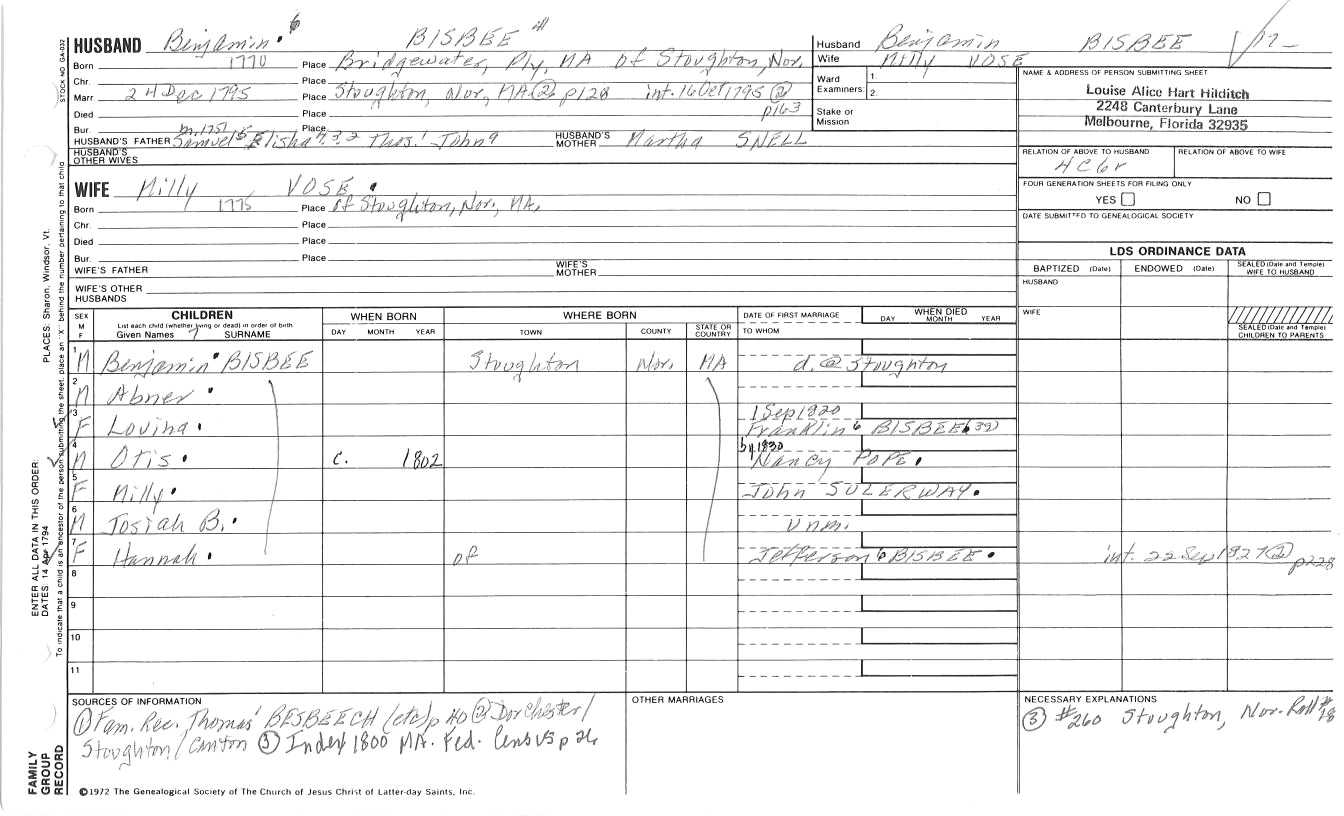 HUSBAND Benjamin 6 BISBEE
Born 1770 Place Bridgewater, Ply, MA of Stoughton, Nor.
Chr. Place
Marr. 24 Dec 1795 Place Stoughton, Nor, MA @ p128 int. 16 Oct 1795 @ p163
Died Place
Bur. Place
m. 1757
HUSBAND'S FATHER Samuel 5 Elisha 4,3,2 Thos.1 John 9 HUSBAND'S MOTHER Martha SNELL
HUSBAND'S OTHER WIVES
WIFE Milly VOSE
Born 1775 Place of Stoughton, Nor., MA.
Chr. Place
Died Place
Bur. Place
WIFE'S FATHER WIFE'S MOTHER
WIFE'S OTHER HUSBANDS
Husband Benjamin BISBEE
Wife Milly VOSE
Ward Examiners: 1. 2.
Stake or Mission
NAME & ADDRESS OF PERSON SUBMITTING SHEET
Louise Alice Hart Hilditch
2248 Canterbury Lane
Melbourne, Florida 32935
RELATION OF ABOVE TO HUSBAND RELATION OF ABOVE TO WIFE
4C6r
FOUR GENERATION SHEETS FOR FILING ONLY
YES NO
DATE SUBMITTED TO GENEALOGICAL SOCIETY
LDS ORDINANCE DATA
BAPTIZED (Date) ENDOWED (Date) SEALED (Date and Temple) WIFE TO HUSBAND
HUSBAND
WIFE
SEALED (Date and Temple) CHILDREN TO PARENTS
SEX M F CHILDREN WHEN BORN WHERE BORN DATE OF FIRST MARRIAGE WHEN DIED
List each child (whether living or dead) in order of birth
Given Names 7 SURNAME DAY MONTH YEAR TOWN COUNTY STATE OR COUNTRY TO WHOM DAY MONTH YEAR
1 M Benjamin BISBEE Stoughton Nor. MA d. @ Stoughton
2 M Abner
3 F Lovina 1 Sep 1820 Franklin 6 BISBEE
4 M Otis c. 1802 by 1830 Nancy POPE
5 F Milly John SULERWAY
6 M Josiah B. unm.
7 F Hannah of Jefferson 6 BISBEE int. 22 Sep 1827 @ p228
8
9
10
11
SOURCES OF INFORMATION
① Fam. Rec. Thomas' BESBEECH (etc) p 40 ② Dorchester/
Stoughton/Canton ③ Index 1800 MA. Fed. Census p 26
OTHER MARRIAGES
NECESSARY EXPLANATIONS
③ #260 Stoughton, Nor. Roll #18
©1972 The Genealogical Society of The Church of Jesus Christ of Latter-day Saints, Inc.
STOCK NO. GA-032
PLACES: Sharon, Windsor, Vt.
ENTER ALL DATA IN THIS ORDER:
DATES: 14 Apr 1794
To indicate that a child is an ancestor of the person submitting the sheet, place an "X" behind the number pertaining to that child
FAMILY GROUP RECORD